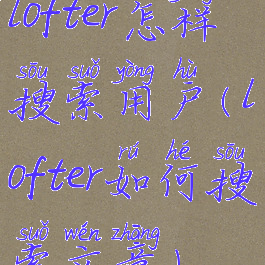 lofter怎样
sōu suǒ yòng hù
搜索用户(l
rú hé sōu
ofter如何搜
suǒ wén zhāng
索文章)